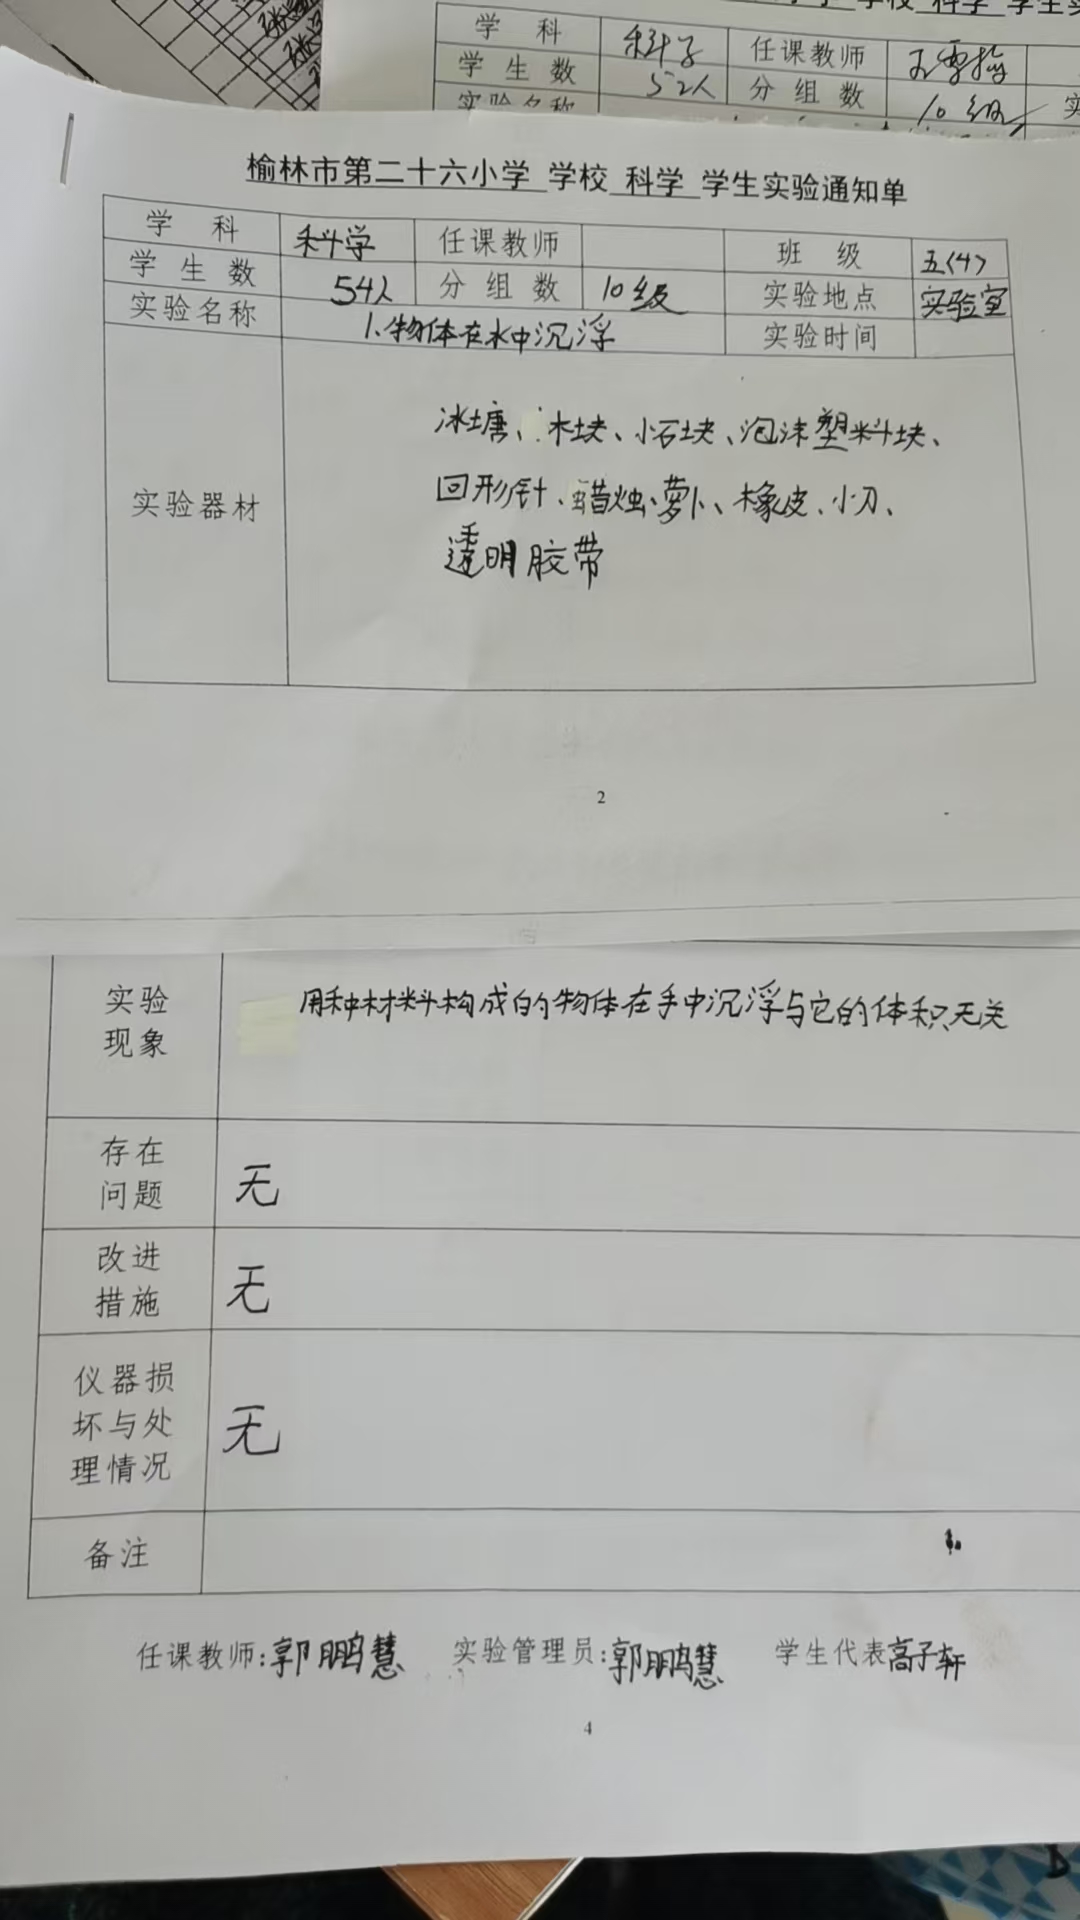 学校 科学 学生实
学科 科学 任课教师
学生数 52人 分组数 10组
实验名称 实
榆林市第二十六小学 学校 科学 学生实验通知单
学科 科学 任课教师 班级 五(4)
学生数 54人 分组数 10级 实验地点 实验室
实验名称 1.物体在水中沉浮 实验时间
实验器材
冰塘、木块、小石块、泡沫塑料块、
回形针、蜡烛、萝卜、橡皮、小刀、
透明胶带
2
实验
现象
用种材料构成的物体在手中沉浮与它的体积无关
存在
问题
无
改进
措施
无
仪器损
坏与处
理情况
无
备注
任课教师:郭鹏慧 实验管理员:郭鹏慧 学生代表高子轩
4